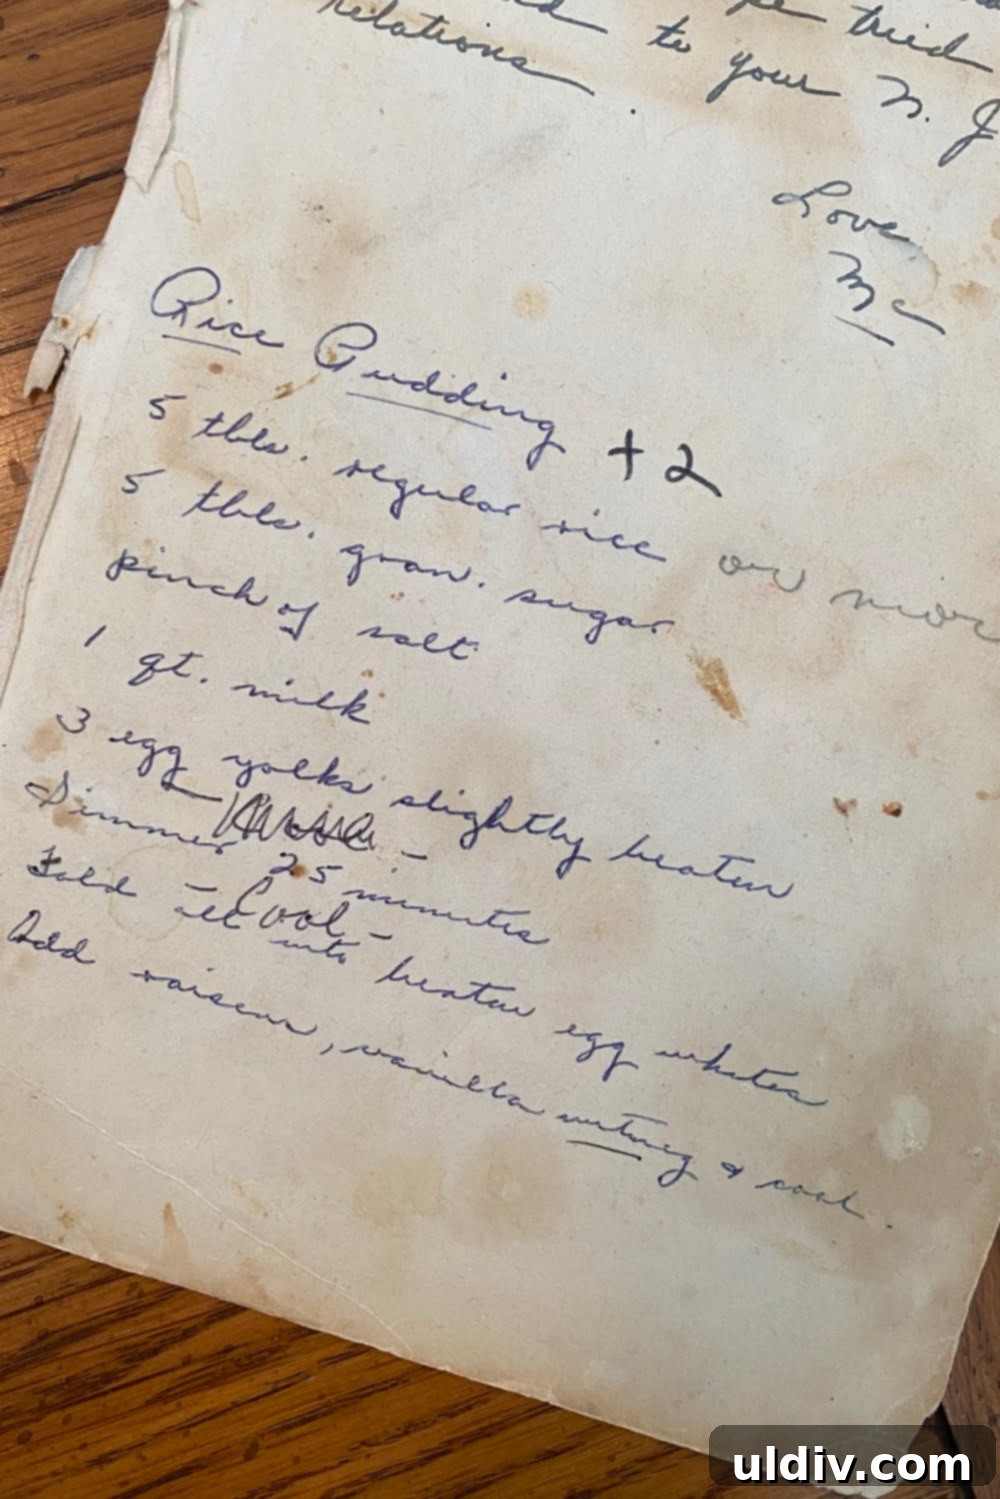 tried
to your N. J
Relations.
Love,
Mc
Rice Pudding +2
5 tbls. regular rice or mor
5 tbls. gran. sugar
pinch of salt
1 qt. milk
3 egg yolks slightly beaten
Simmer 25 minutes
- Cool -
Fold all into beaten egg whites
Add raisens, vanilla nutmeg & cool.
uldiv.com